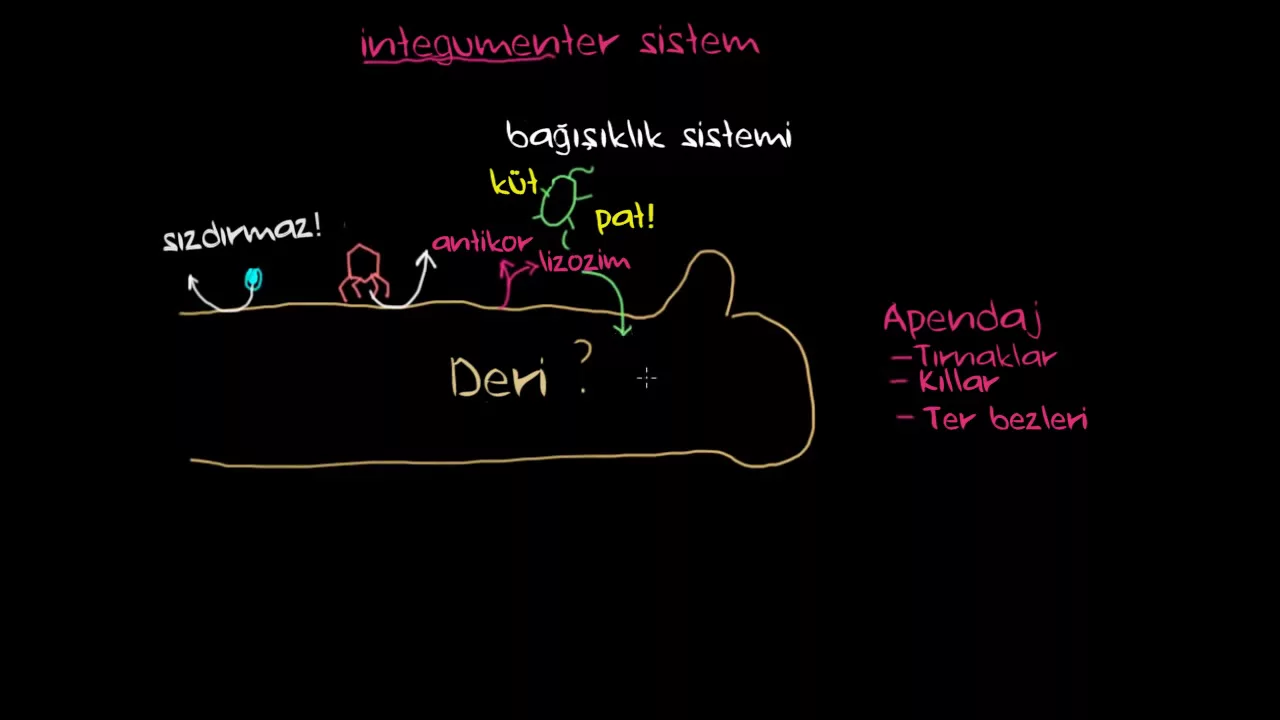 integumenter sistem
bağışıklık sistemi
küt
pat!
sızdırmaz!
antikor
lizozim
Deri ?
Apendaj
– Tırnaklar
– Kıllar
– Ter bezleri